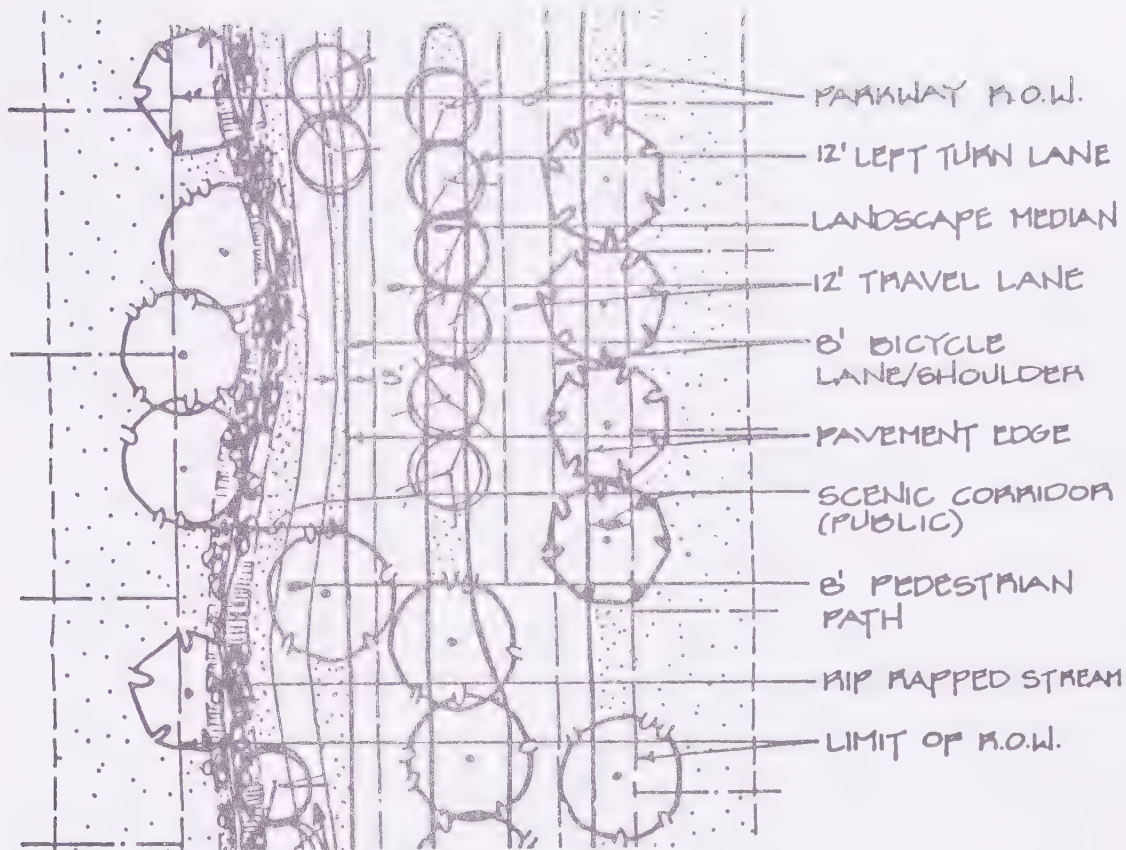 PARKWAY R.O.W.
12' LEFT TURN LANE
LANDSCAPE MEDIAN
12' TRAVEL LANE
8' BICYCLE
LANE/SHOULDER
PAVEMENT EDGE
SCENIC CORRIDOR
(PUBLIC)
8' PEDESTRIAN
PATH
RIP RAPPED STREAM
LIMIT OF R.O.W.